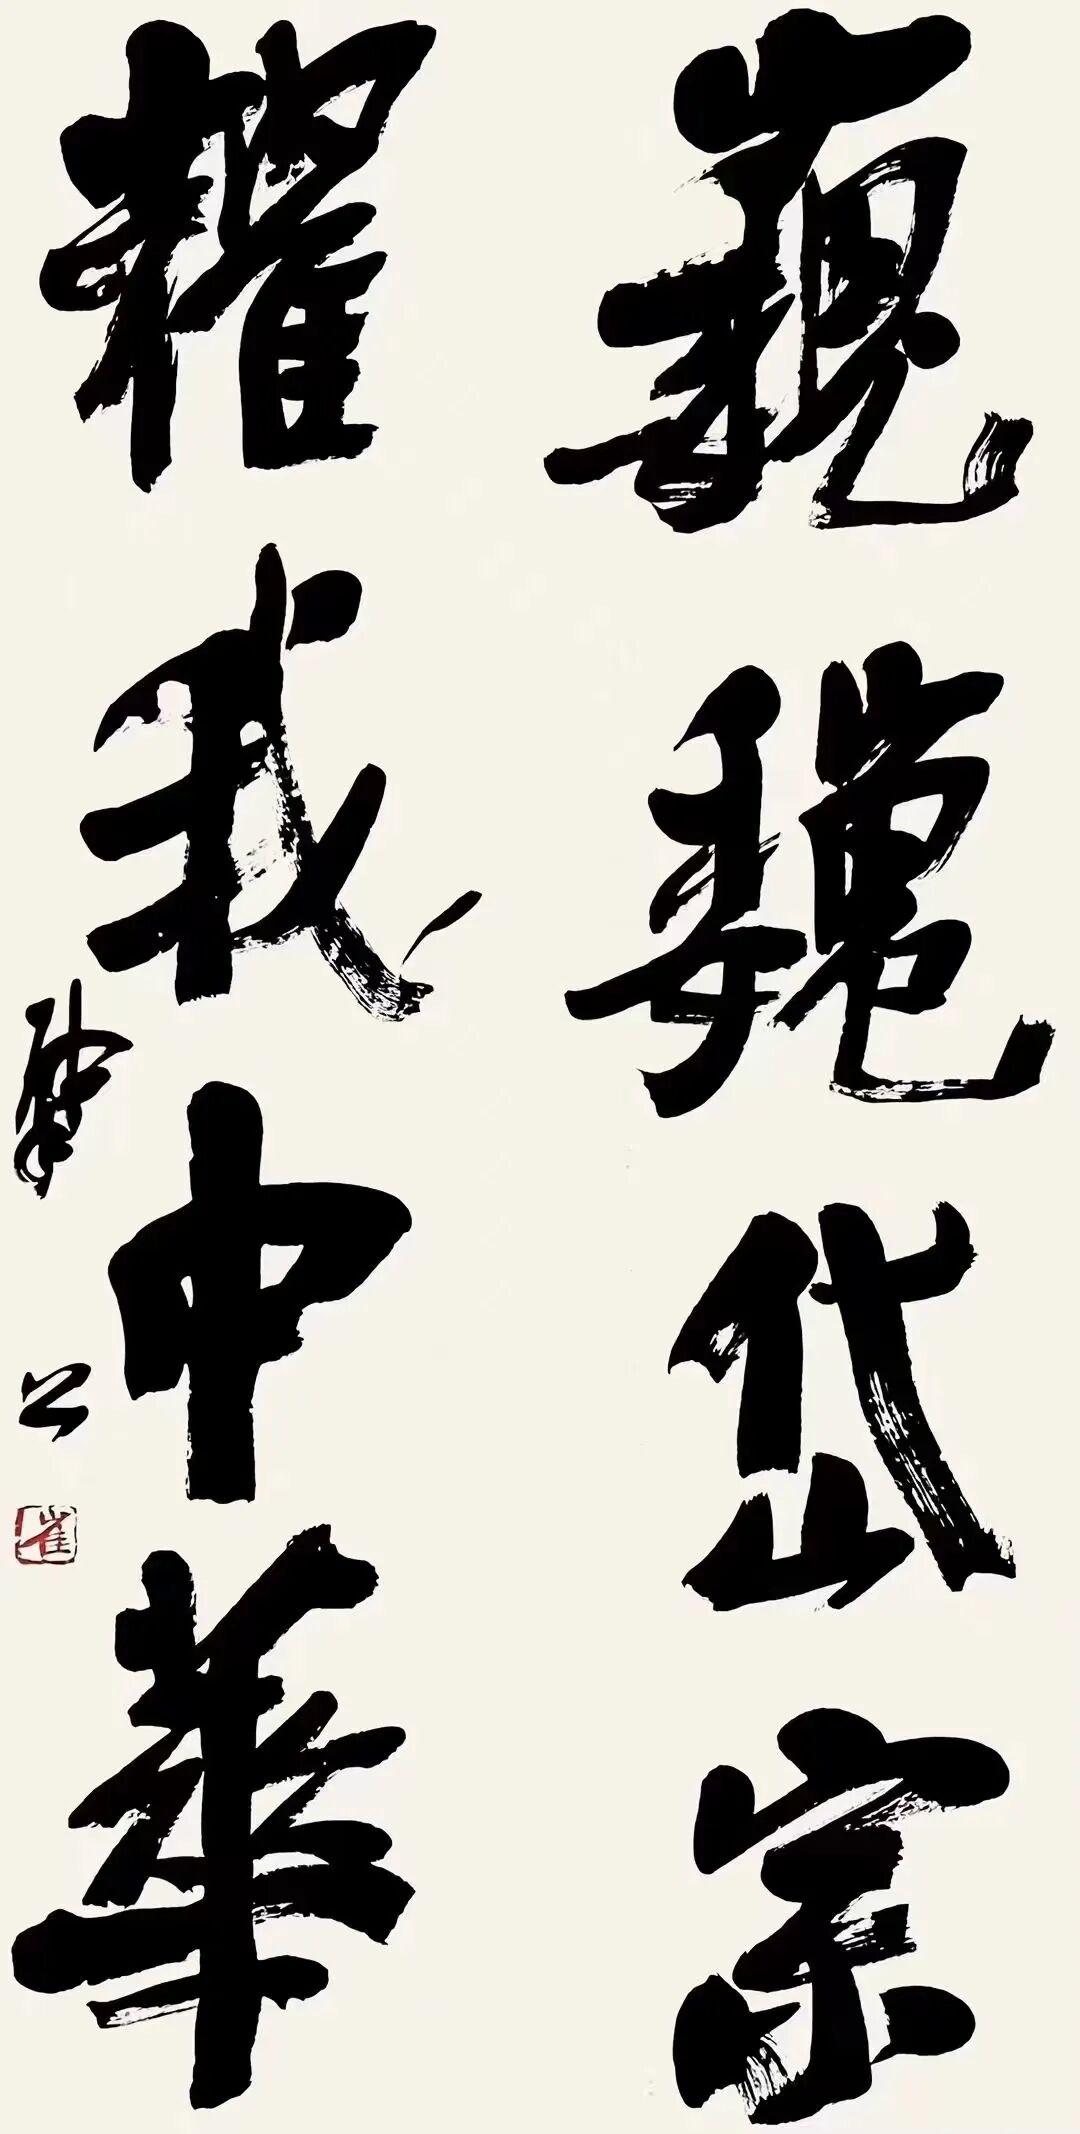 巍巍岱宗
耀我中華
肇公
崔